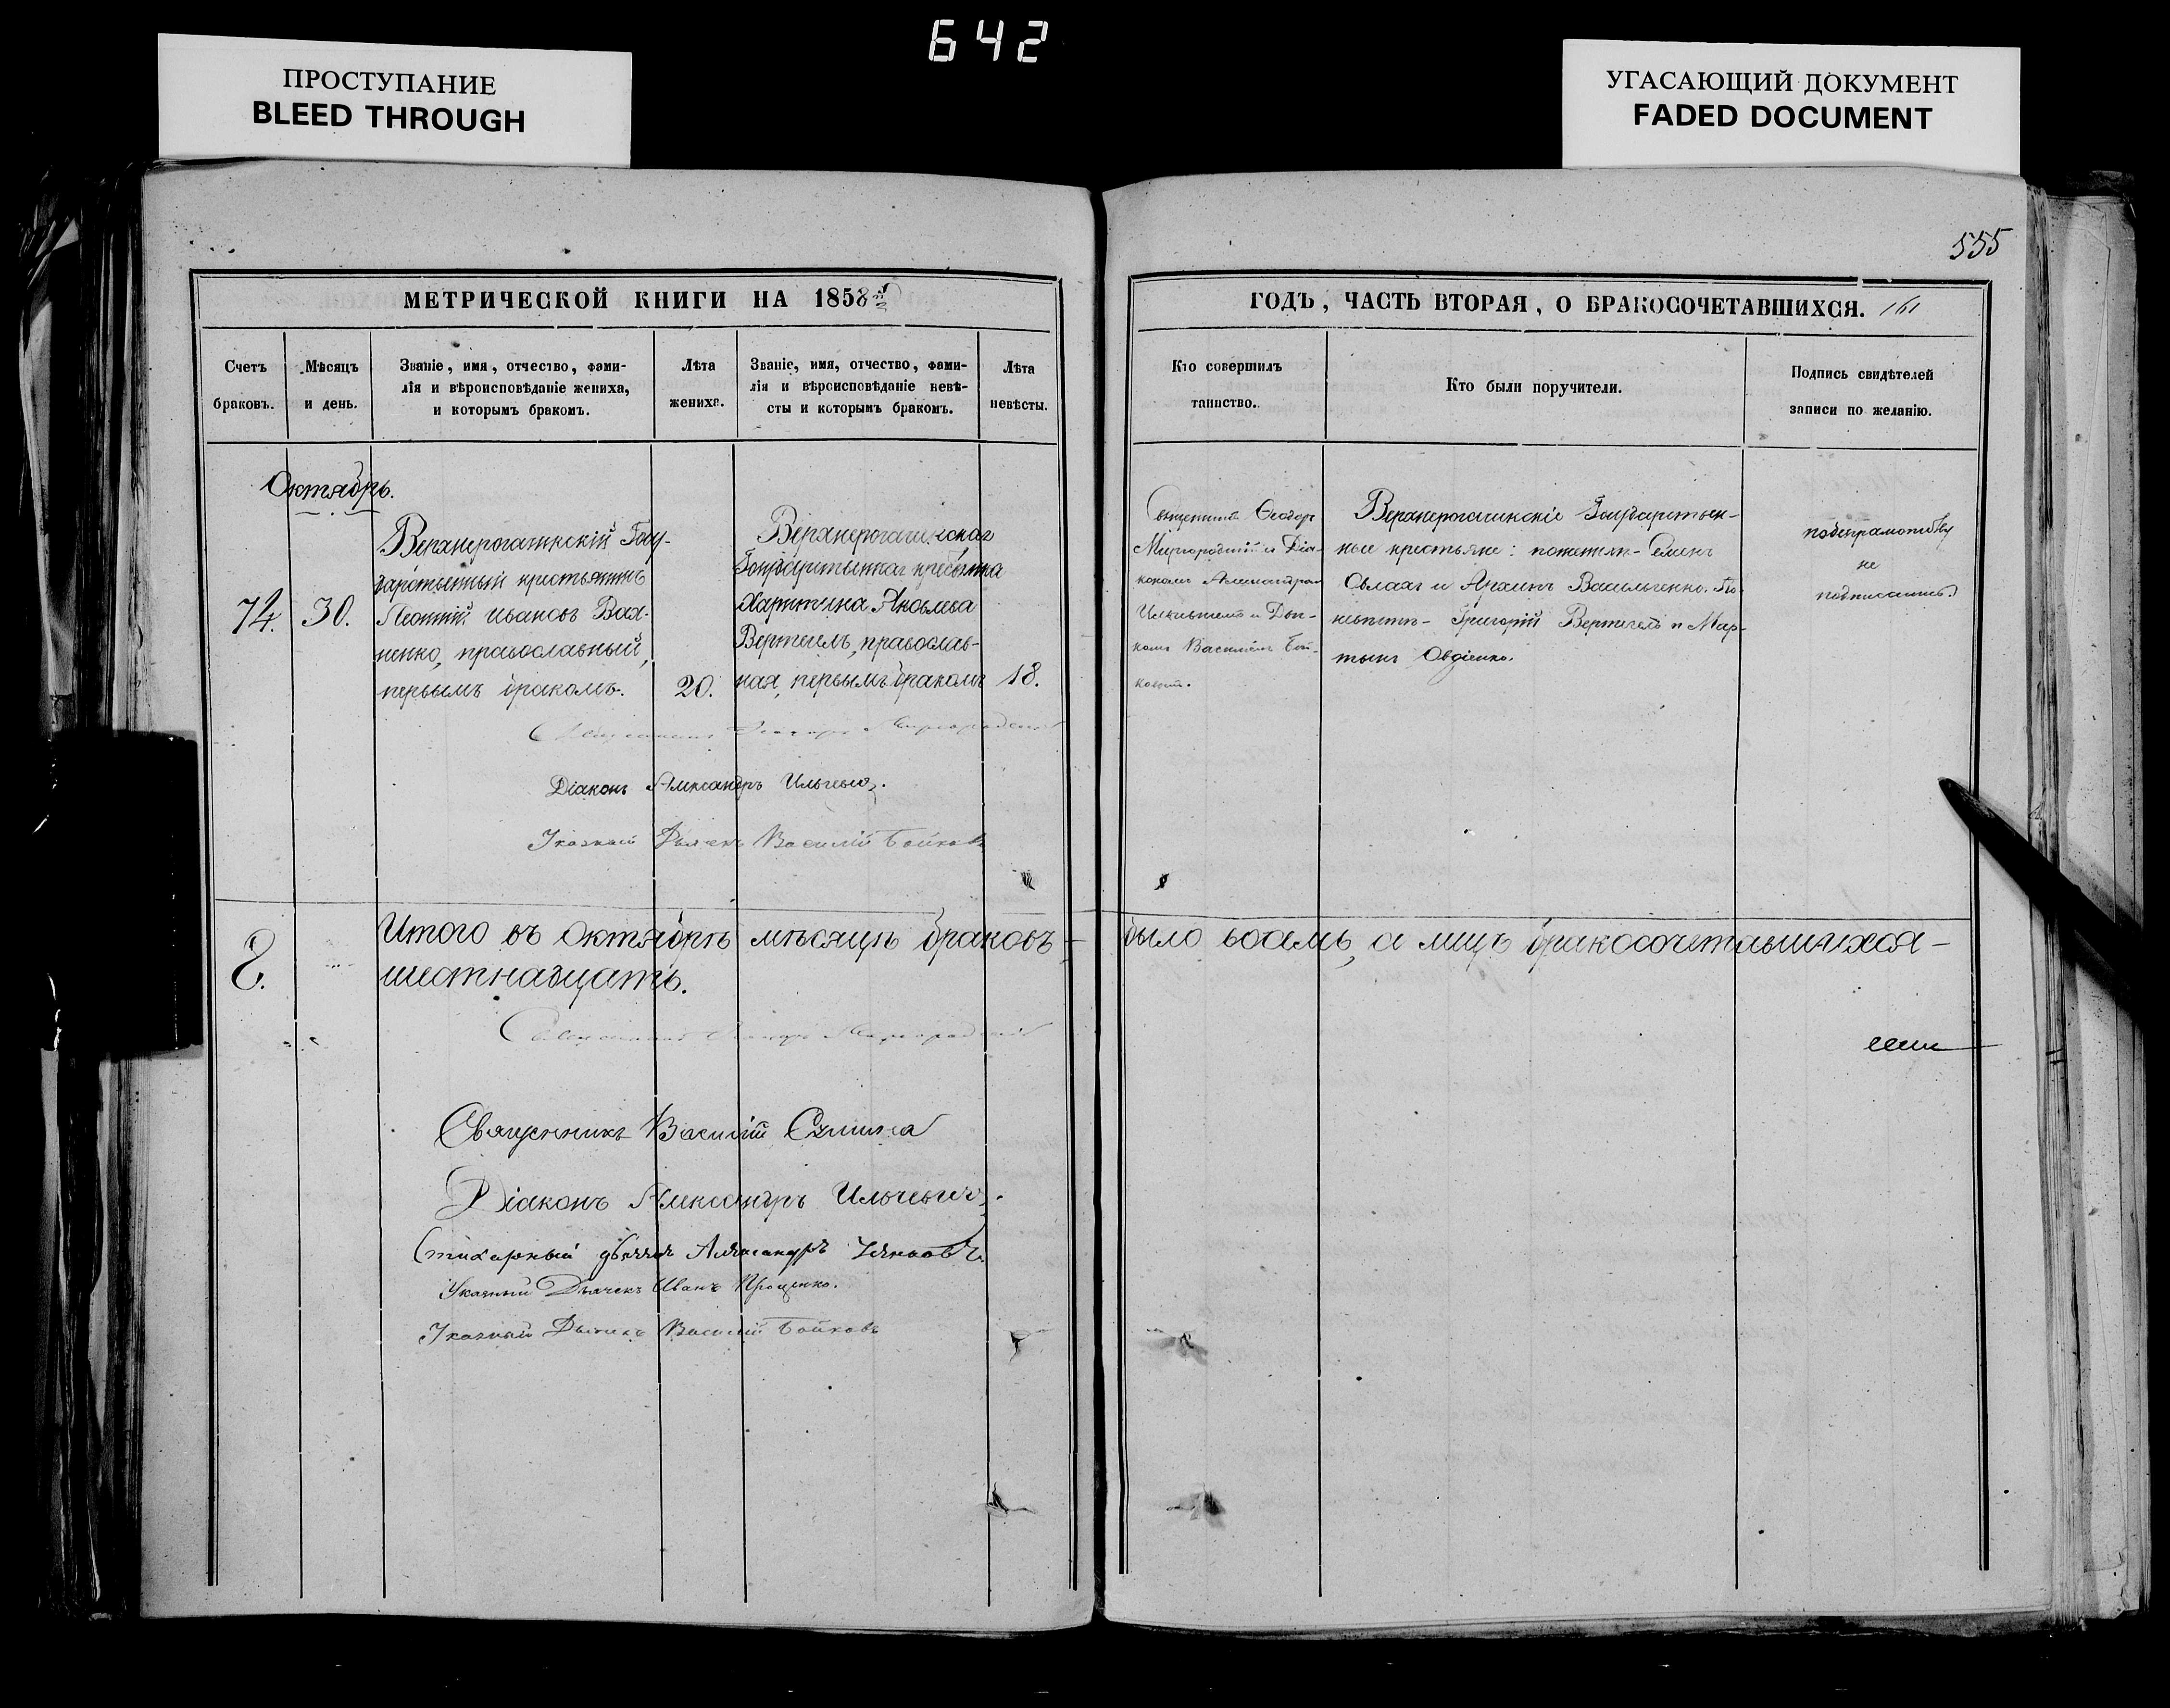 642
ПРОСТУПАНИЕ
BLEED THROUGH
УГАСАЮЩИЙ ДОКУМЕНТ
FADED DOCUMENT
555
МЕТРИЧЕСКОЙ КНИГИ НА 1858й
ГОДЪ, ЧАСТЬ ВТОРАЯ, О БРАКОСОЧЕТАВШИХСЯ. 161
Счетъ
браковъ.
Мѣсяцъ
и день.
Званіе, имя, отчество, фами-
лія и вѣроисповѣданіе жениха,
и которымъ бракомъ.
Лѣта
жениха.
Званіе, имя, отчество, фами-
лія и вѣроисповѣданіе невѣ-
сты и которымъ бракомъ.
Лѣта
невѣсты.
Кто совершилъ
таинство.
Кто были поручители.
Подпись свидѣтелей
записи по желанію.
Октябрь.
74.
30.
Верхнерогачикскій Госу-
дарственный крестьянинъ
Леонтій Ивановъ Вах-
ненко, православный,
первымъ бракомъ.
20.
Верхнерогачикская
Государственная крестьянка
Харитина Яковлева
Вертегелъ, православ-
ная, первымъ бракомъ
18.
Священникъ Ѳеодоръ
Миргородскій съ Діа-
кономъ Александромъ
Ильчевичемъ и Дьяч-
комъ Василіемъ Бой-
ковымъ.
Верхнерогачикскіе Государствен-
ные крестьяне: по женихѣ - Семенъ
и Василченко. По
невѣстѣ - Григорій Вертегелъ и Мар-
тынъ Овдіенко.
не
Священникъ Ѳеодоръ Миргородскій
Діаконъ Александръ Ильчевичъ.
Указный Дьячекъ Василій Бойковъ
8.
Итого въ Октябрѣ мѣсяцѣ браковъ - было восемь, а лицъ бракосочетавшихся -
шестнадцать.
Священникъ Ѳеодоръ Миргородскій
Священникъ Василій
Діаконъ Александръ Ильчевичъ.
Стихарный дьячекъ Александръ
Указный Дьячекъ Иванъ Проценко.
Указный Дьячекъ Василій Бойковъ